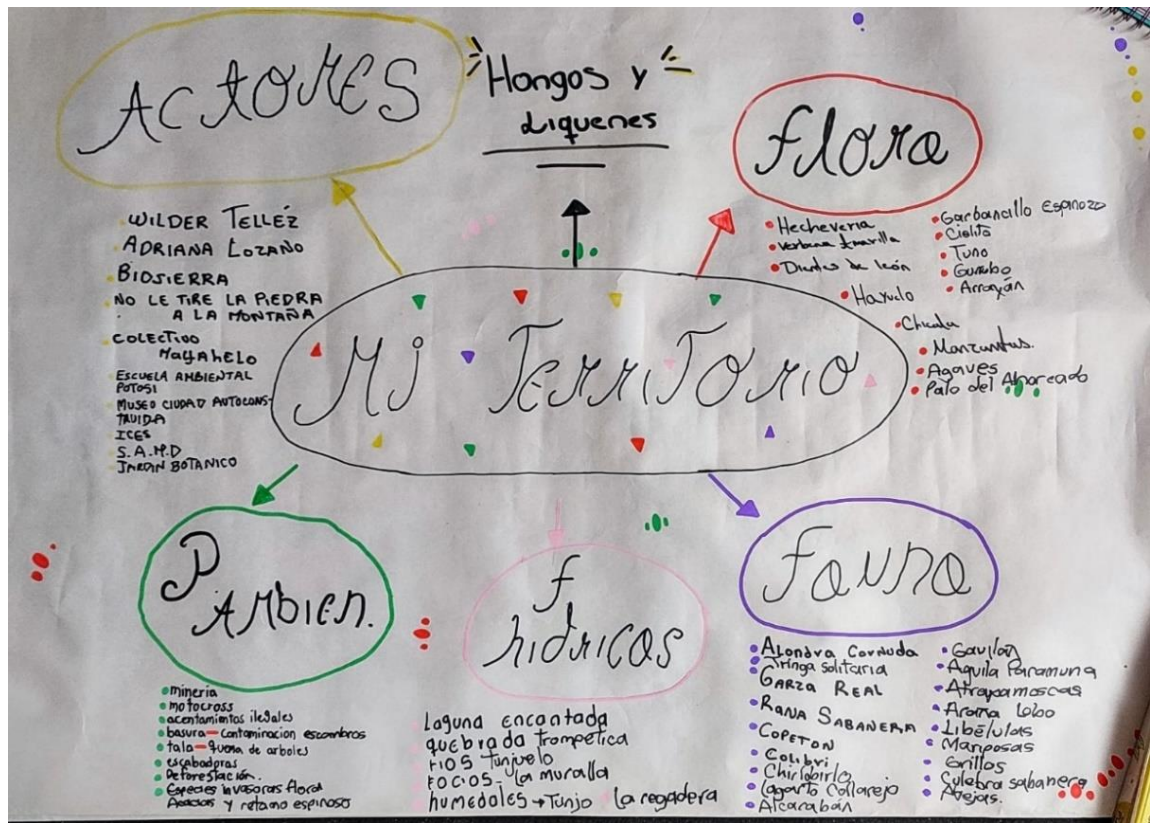 ACTORES
WILDER TELLÉZ
ADRIANA LOZANO
BIOSIERRA
NO LE TIRE LA PIEDRA
A LA MONTAÑA
COLECTIVO
MAYAHELO
ESCUELA AMBIENTAL
POTOSI
MUSEO CIUDAD AUTOCONS-
TRUIDA
ICES
S.A.M.D
JARDIN BOTANICO
Hongos y
Liquenes
Flora
Hecheveria
Verbena Amarilla
Dientes de león
Hayuelo
Garbancillo Espinozo
Cielito
Tuno
Gurrubo
Arrayán
Chicala
Agaves
Palo del Ahorcado
Mi Territorio
P
AMbien.
mineria
motocross
acentamientos ilegales
basura — contaminacion escombros
tala — quema de arboles
escabadoras
Deforestación.
Especies invasoras floral
Acacias y retamo espinoso
f
hidricas
Laguna encantada
quebrada trompetica
rios Tunjuelo
pocios - La muralla
humedales → Tunjo La regadera
Fauna
Alondra Cornuda
Tiringa solitaria
GARZA REAL
RANA SABANERA
COPETON
Colibri
Chirlobirlo
Lagarto Collarejo
Alcarabán
Gavilán
Aguila Paramuna
Atrapamoscas
Araña lobo
Libélulas
Mariposas
Grillos
Culebra sabanera
Avejas.